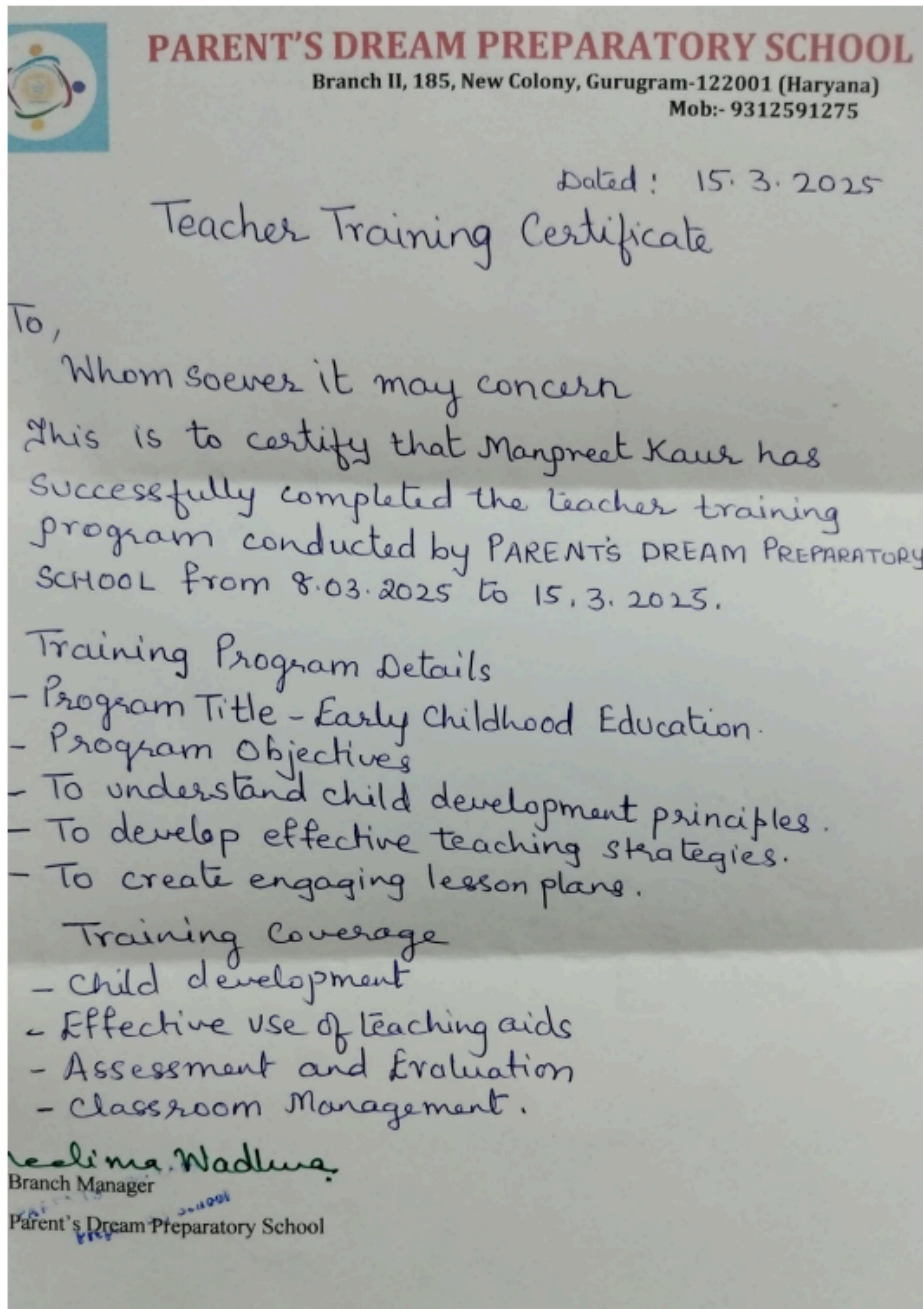 PARENT'S DREAM PREPARATORY SCHOOL
Branch II, 185, New Colony, Gurugram-122001 (Haryana)
Mob:- 9312591275
Dated : 15. 3. 2025
Teacher Training Certificate
To,
Whom soever it may concern
This is to certify that Manpreet Kaur has
Successfully completed the teacher training
program conducted by PARENT'S DREAM PREPARATORY
SCHOOL from 8.03.2025 to 15.3.2025.
Training Program Details
- Program Title - Early Childhood Education.
- Program Objectives
- To understand child development principles.
- To develop effective teaching strategies.
- To create engaging lesson plans.
Training Coverage
- Child development
- Effective use of teaching aids
- Assessment and Evaluation
- Classroom Management.
Wadhwa
Branch Manager
Parent's Dream Preparatory School